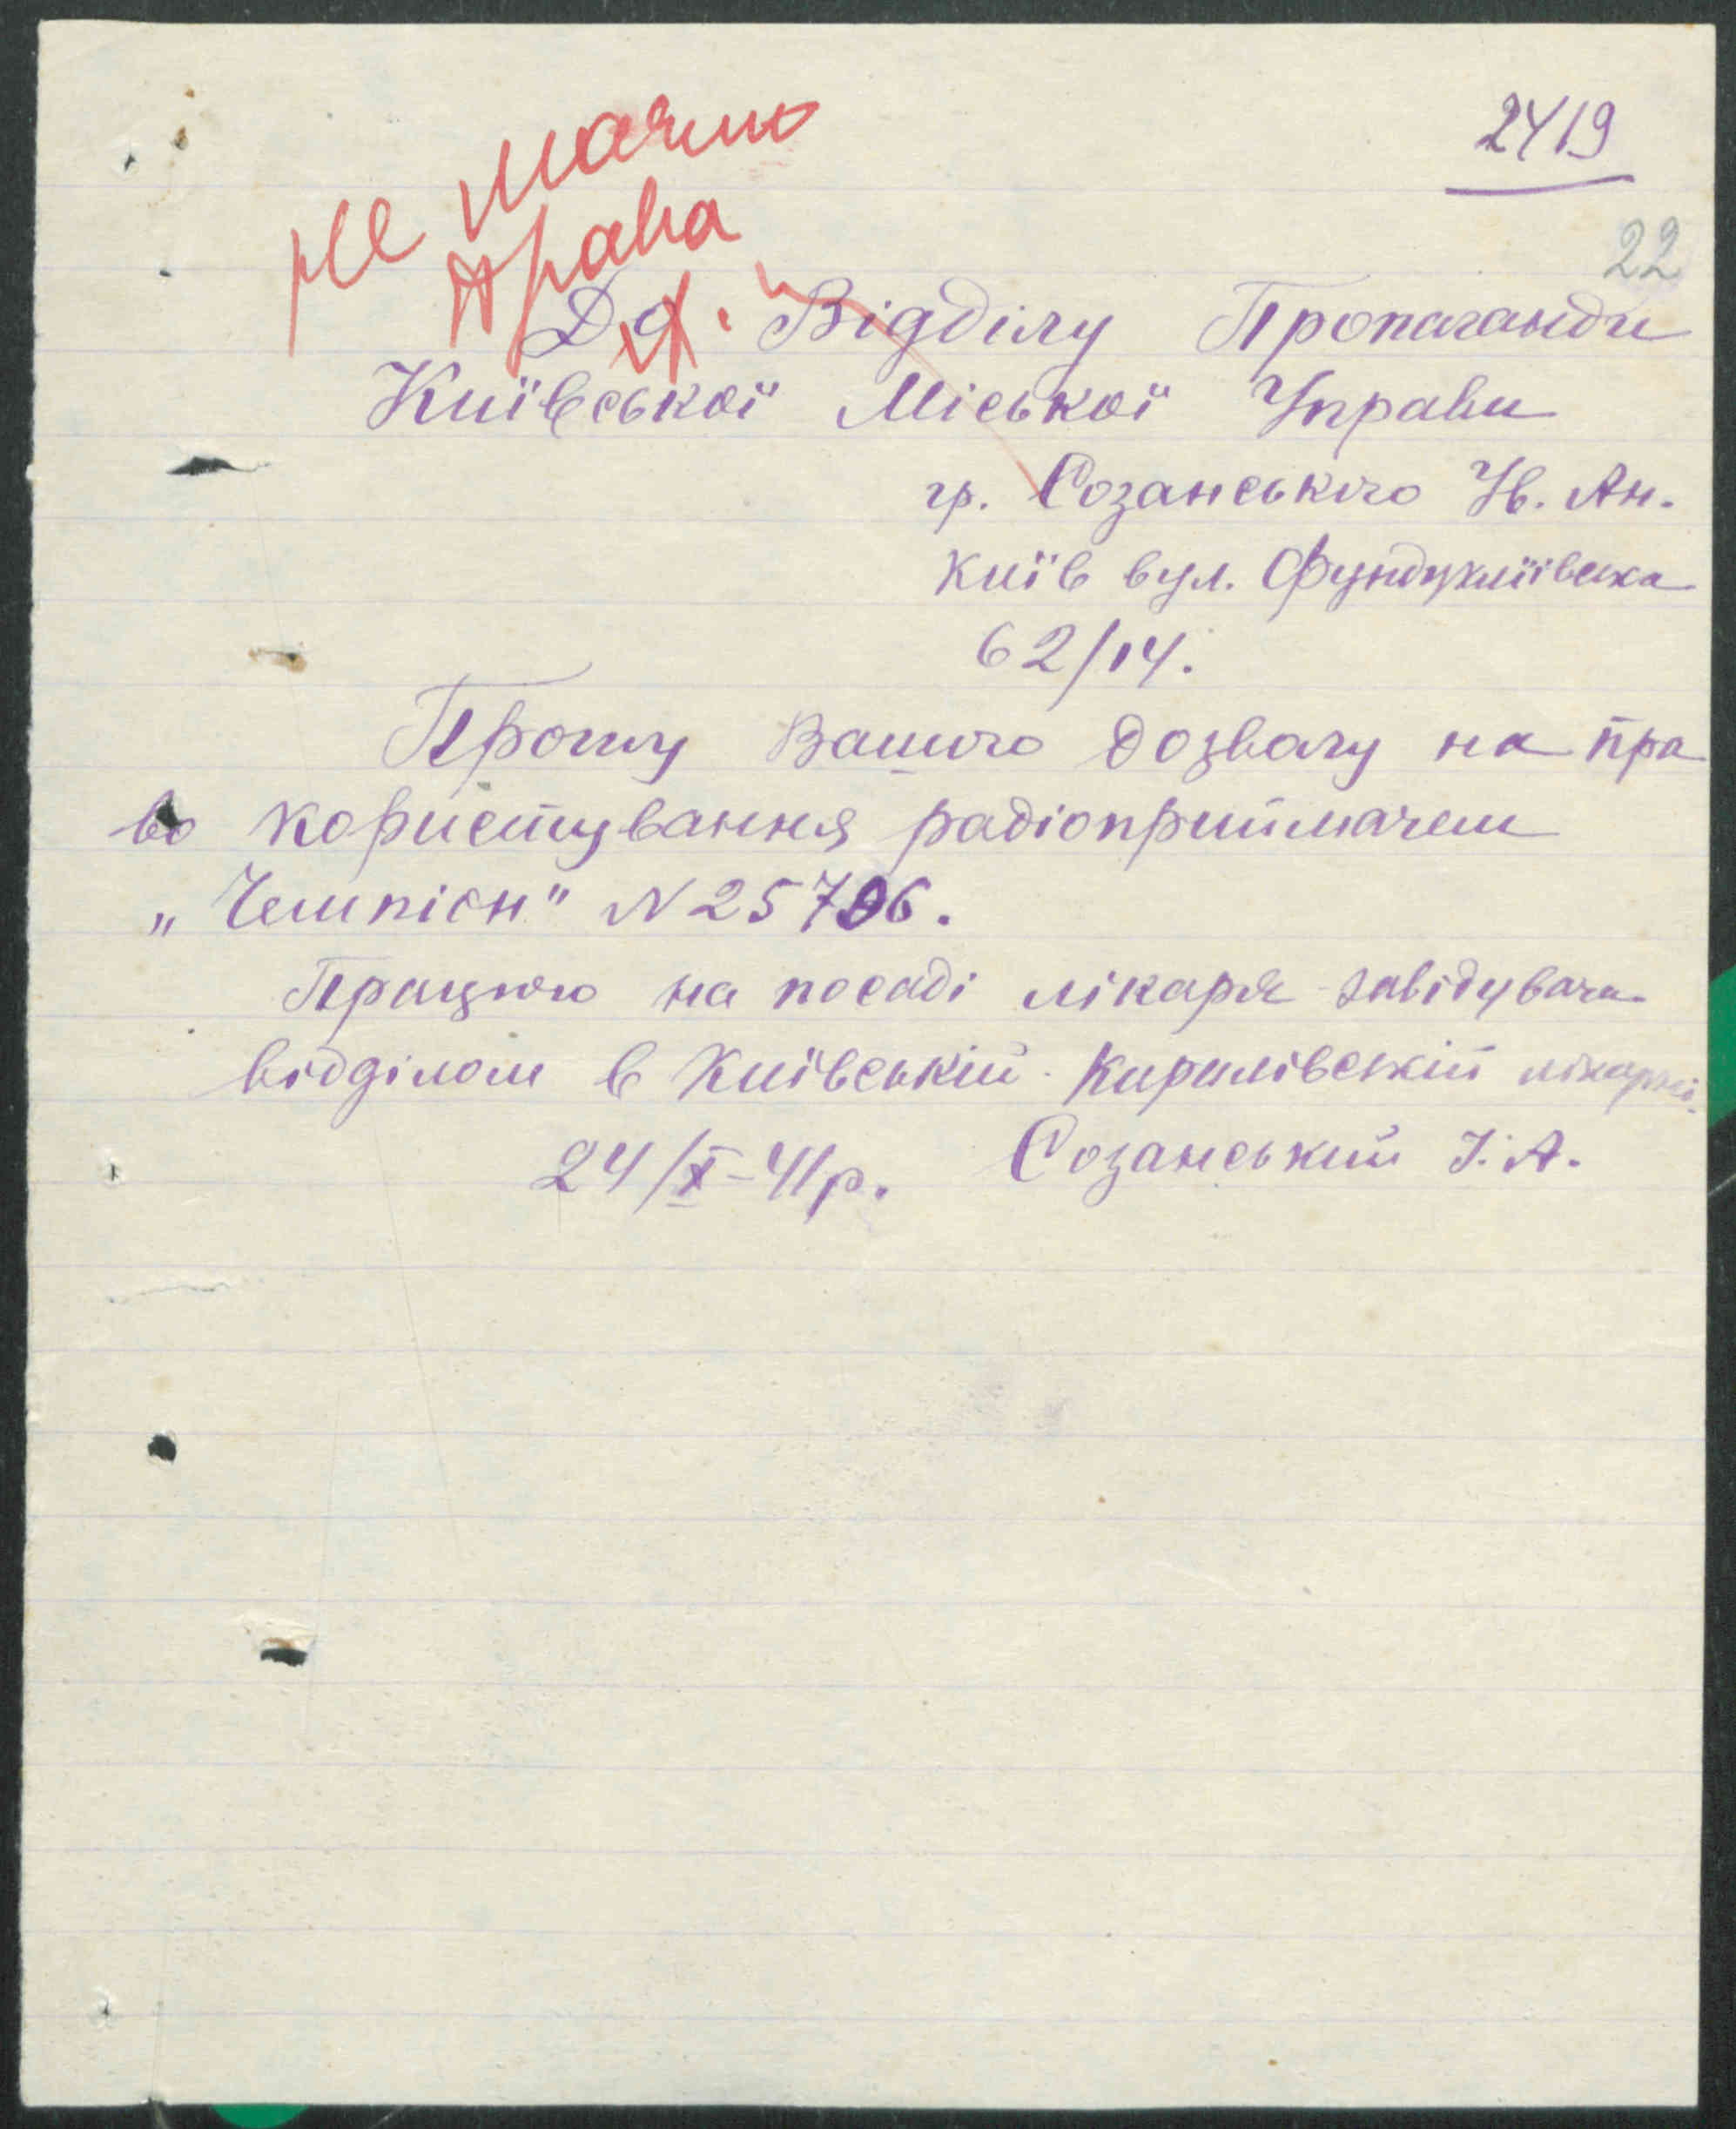 2419
22
не маємо
права
До Відділу Пропаганди
Київської Міської Управи
гр. Созанського Ів. Ан.
Київ вул. Фундукліївська
62/14.
Прошу Вашого дозволу на пра
во користування радіоприймачем
„Чемпіон" N 25706.
Працюю на посаді лікаря завідувача
відділом в Київській Кирилівській лікарні.
24/X-41р. Созанський І. А.